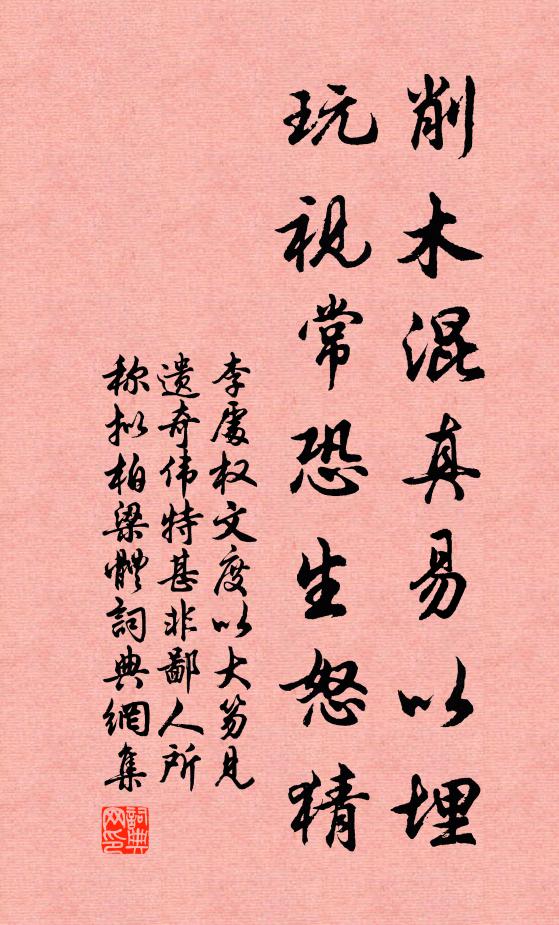 削木混真易以埋
玩視常恐生怒猜
李處权文度以大笏見
遗奇伟特甚非鄙人所
称拟柏梁體詞典網集
詞典网印